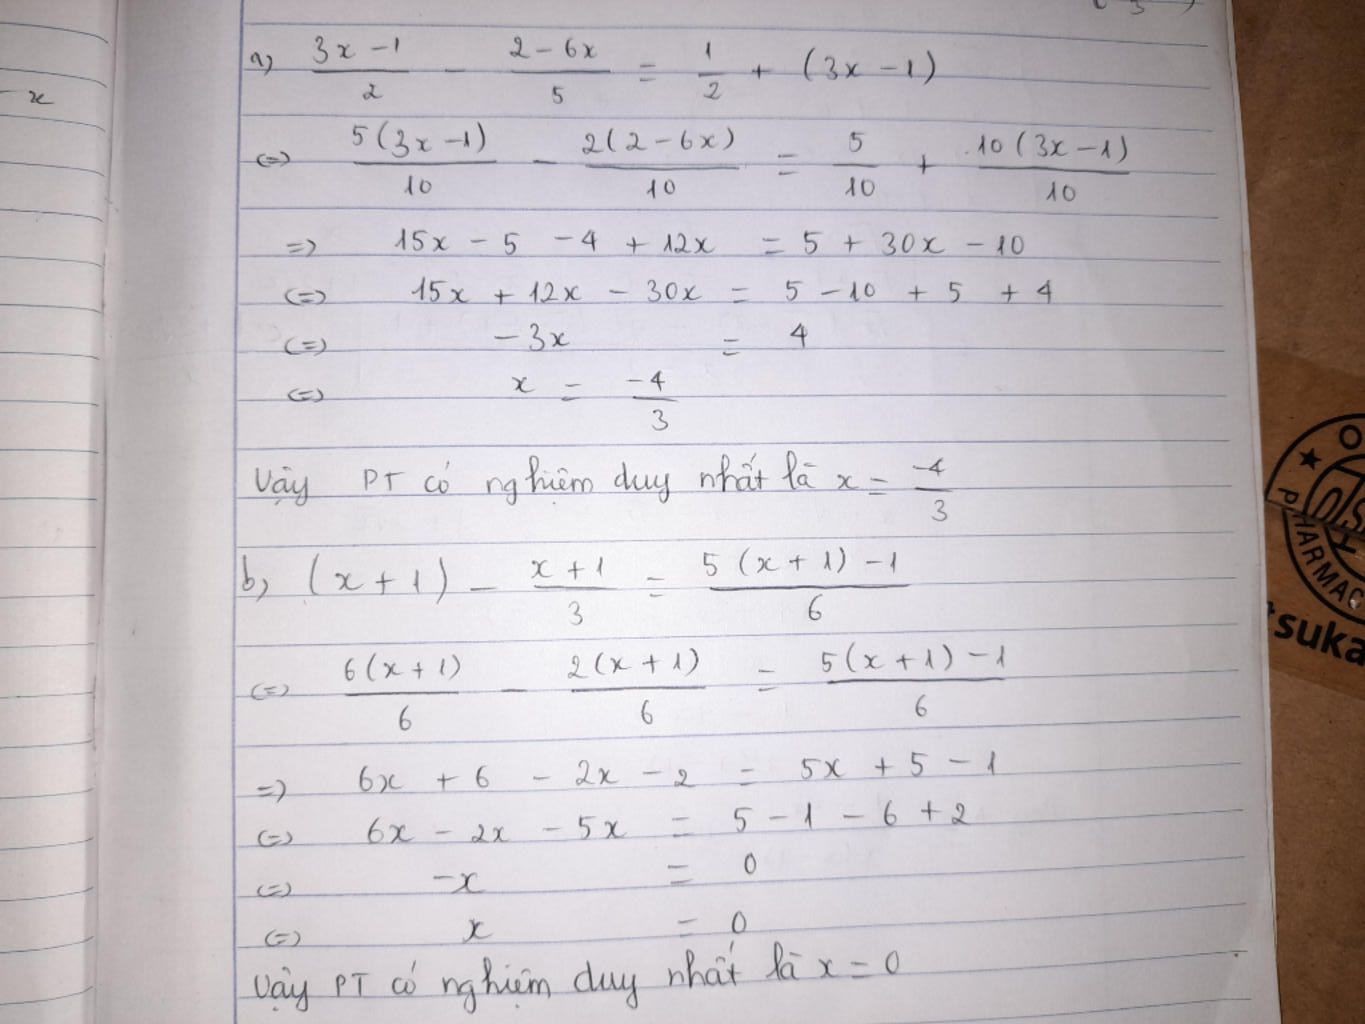 x
a) (3x - 1)/2 - (2 - 6x)/5 = 1/2 + (3x - 1)
(=) 5(3x - 1)/10 - 2(2 - 6x)/10 = 5/10 + 10(3x - 1)/10
=) 15x - 5 - 4 + 12x = 5 + 30x - 10
(=) 15x + 12x - 30x = 5 - 10 + 5 + 4
(=) -3x = 4
(=) x = -4/3
Vậy PT có nghiệm duy nhất là x = -4/3
b) (x + 1) - (x + 1)/3 = (5(x + 1) - 1)/6
(=) 6(x + 1)/6 - 2(x + 1)/6 = (5(x + 1) - 1)/6
=) 6x + 6 - 2x - 2 = 5x + 5 - 1
(=) 6x - 2x - 5x = 5 - 1 - 6 + 2
(=) -x = 0
(=) x = 0
Vậy PT có nghiệm duy nhất là x = 0